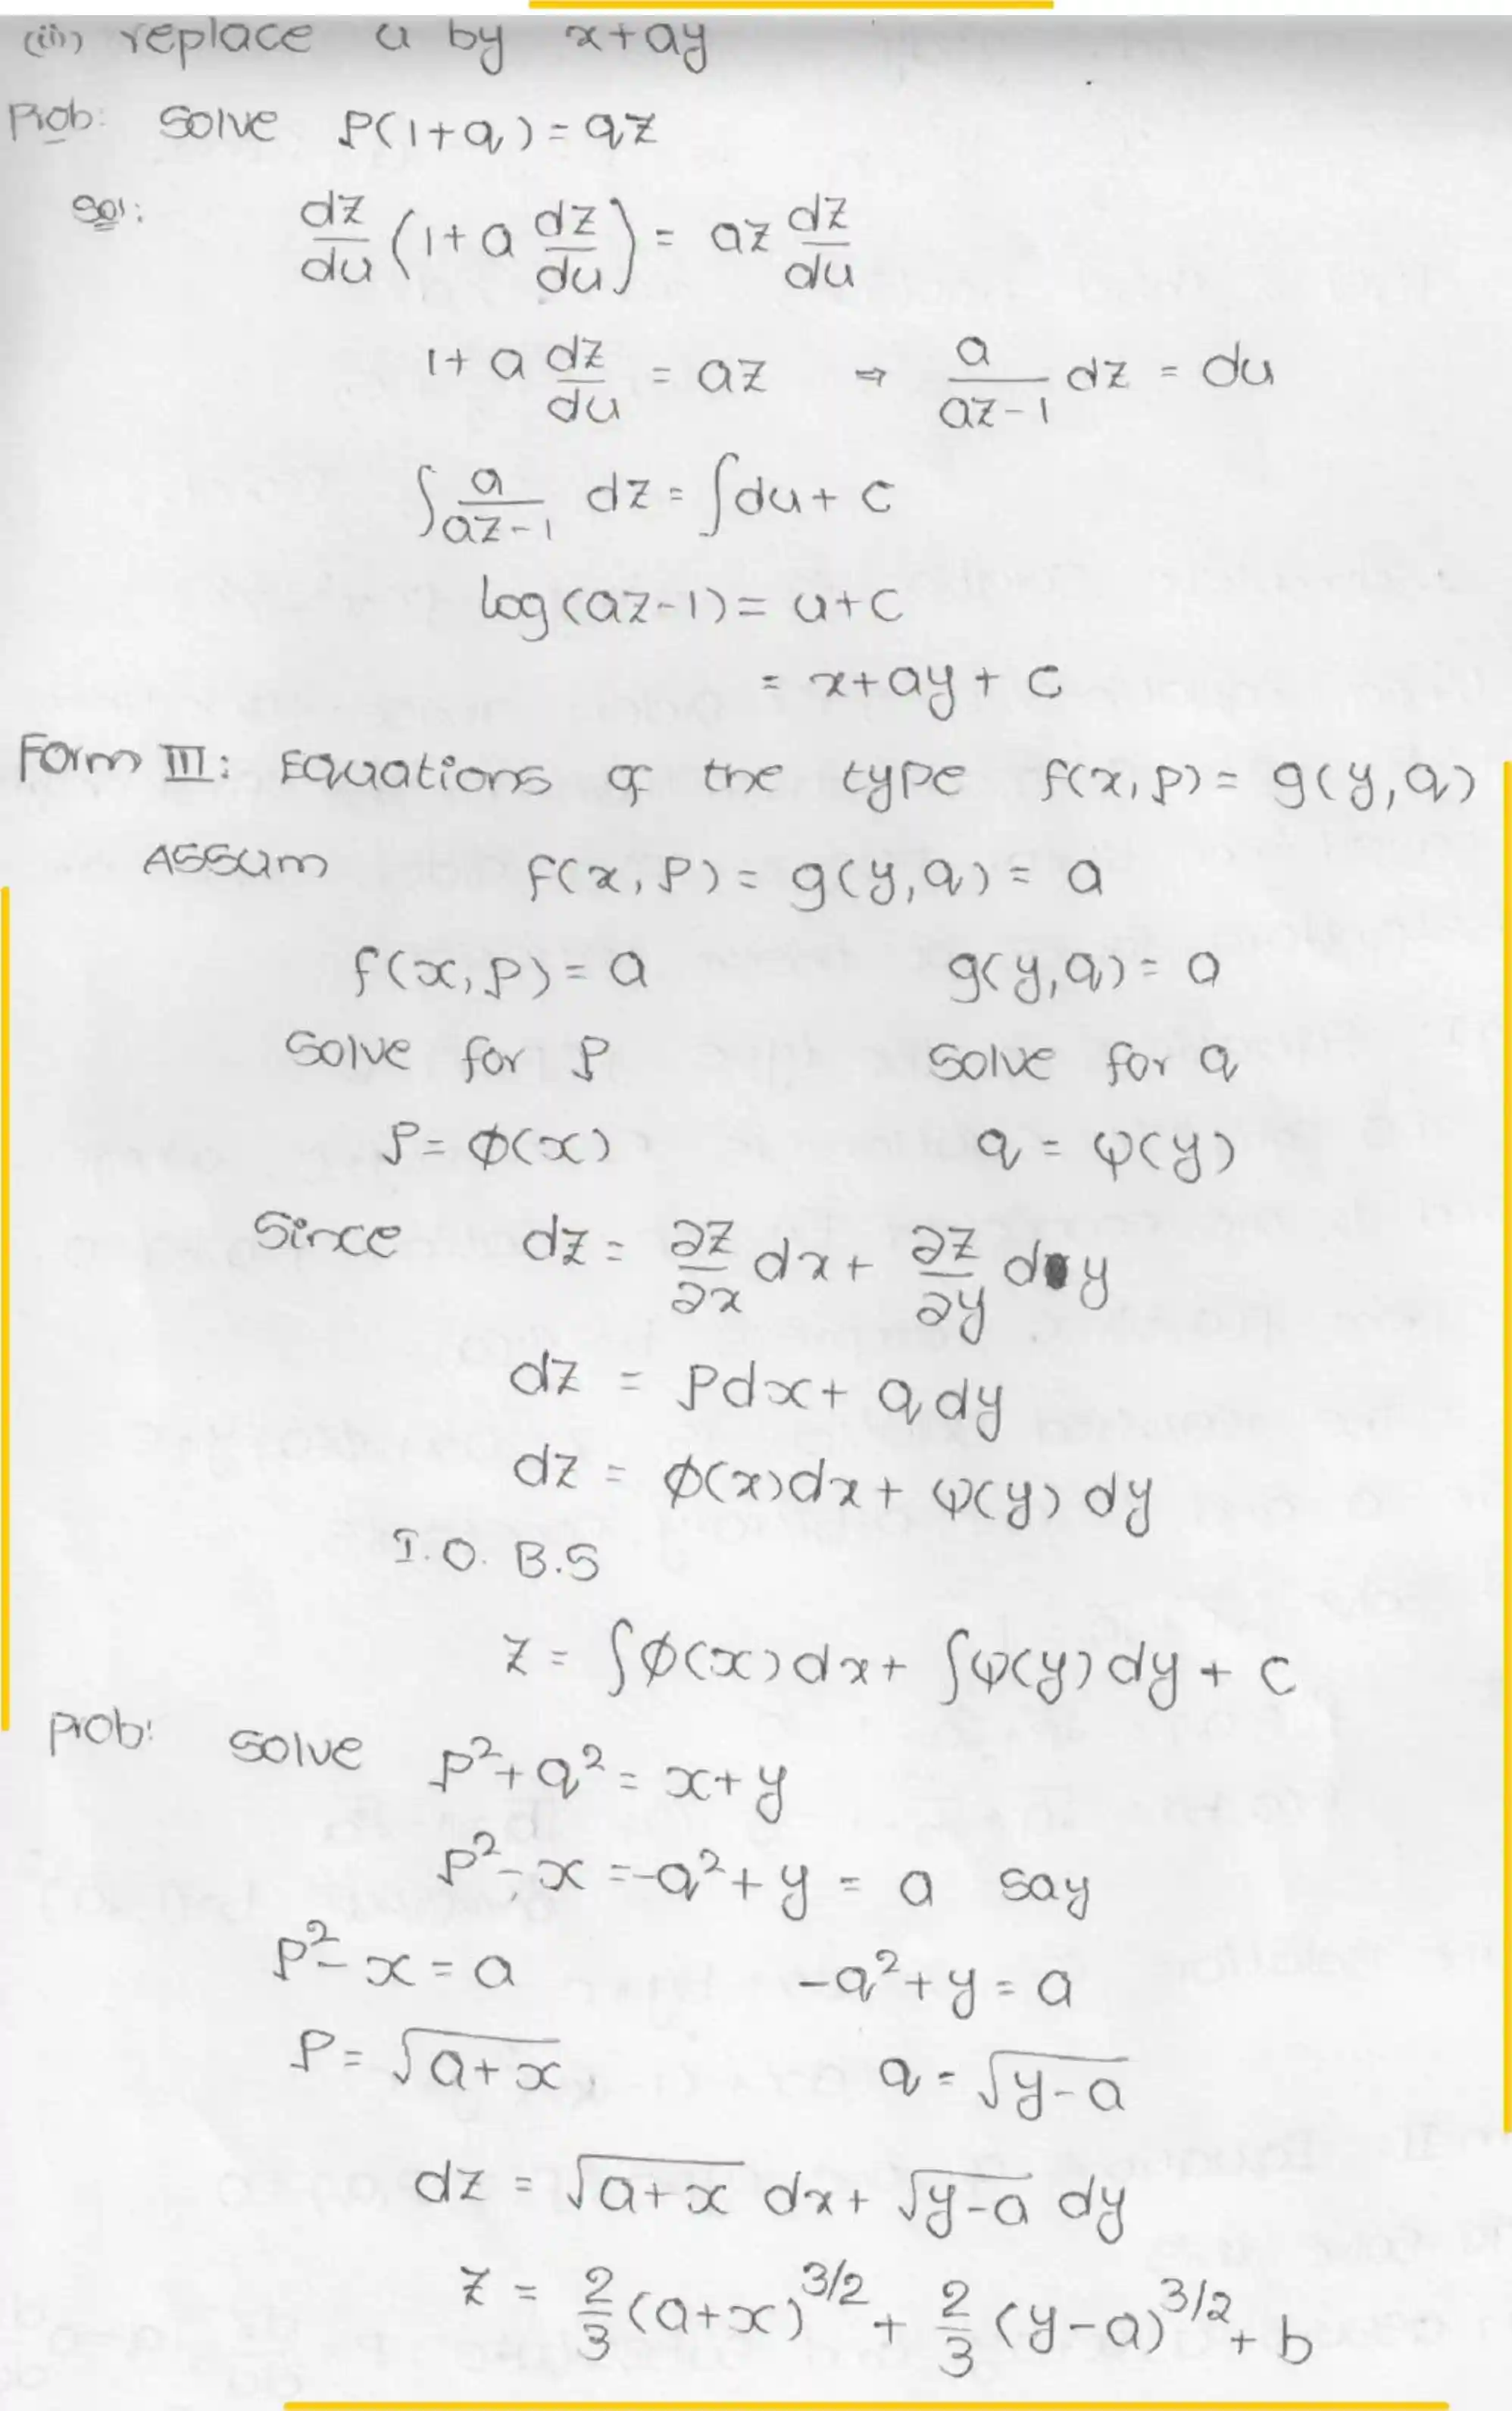 (iii) replace u by x+ay
Prob: Solve P(1+q) = qz
Sol: dz/du (1+a dz/du) = az dz/du
1+a dz/du = az ⇒ a/(az-1) dz = du
∫ a/(az-1) dz = ∫du + c
log(az-1) = u+c
= x+ay+c
Form III: Equations of the type f(x,p) = g(y,q)
Assum f(x,p) = g(y,q) = a
f(x,p) = a g(y,q) = a
Solve for p solve for q
p = φ(x) q = ψ(y)
Since dz = ∂z/∂x dx + ∂z/∂y dy
dz = pdx + qdy
dz = φ(x)dx + ψ(y) dy
I.O.B.S
z = ∫φ(x)dx + ∫ψ(y)dy + c
Prob: solve p²+q² = x+y
p²-x = -q²+y = a say
p²-x = a -q²+y = a
p = √(a+x) q = √(y-a)
dz = √(a+x) dx + √(y-a) dy
z = 2/3 (a+x)^3/2 + 2/3 (y-a)^3/2 + b